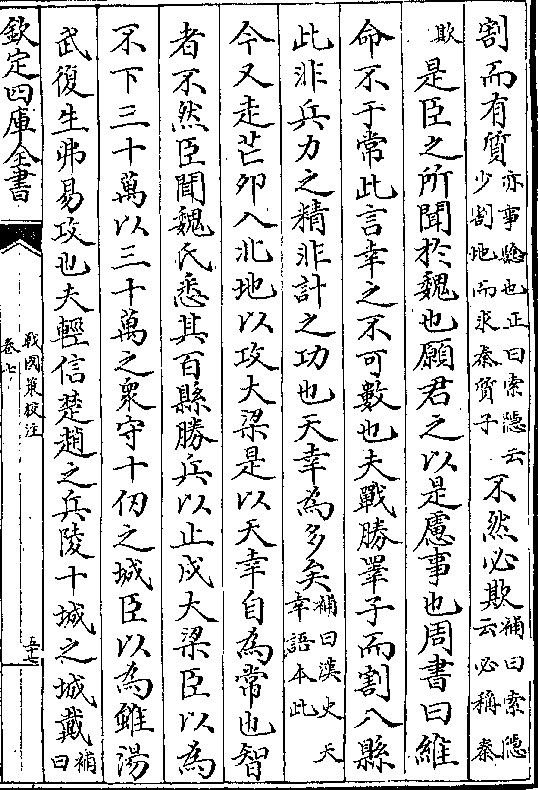 割而有質亦事驗也正曰索隱云少割地而求秦質子不然必欺補曰索隱云必稱秦
欺是臣之所聞於魏也願君之以是慮事也周書曰維
命不于常此言幸之不可數也夫戰勝睪子而割八縣
此非兵力之精非計之功也天幸為多矣補曰漢史天幸語本此
今又走芒卯入北地以攻大梁是以天幸自為常也智
者不然臣聞魏氏悉其百縣勝兵以止戍大梁臣以為
不下三十萬以三十萬之衆守十仞之城臣以為雖湯
武復生弗易攻也夫輕信楚趙之兵陵十城之城戴補曰
欽定四庫全書
戰國策校注
卷七